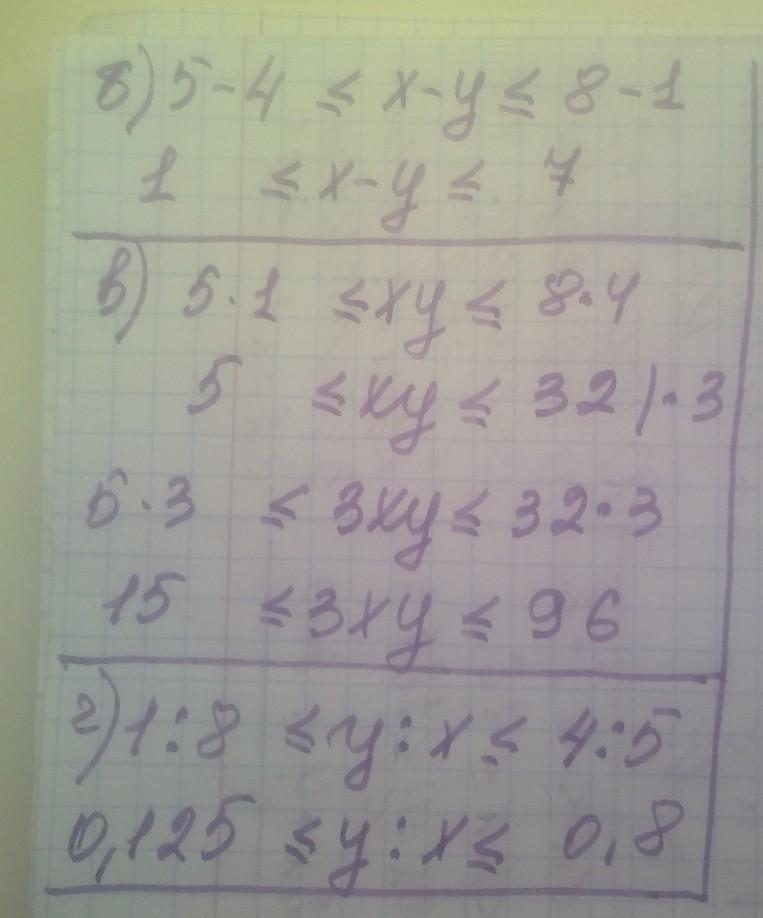 б) 5-4 ≤ x-y ≤ 8-1
1 ≤ x-y ≤ 7
в) 5·1 ≤ xy ≤ 8·4
5 ≤ xy ≤ 32 |·3
5·3 ≤ 3xy ≤ 32·3
15 ≤ 3xy ≤ 96
г) 1:8 ≤ y:x ≤ 4:5
0,125 ≤ y:x ≤ 0,8